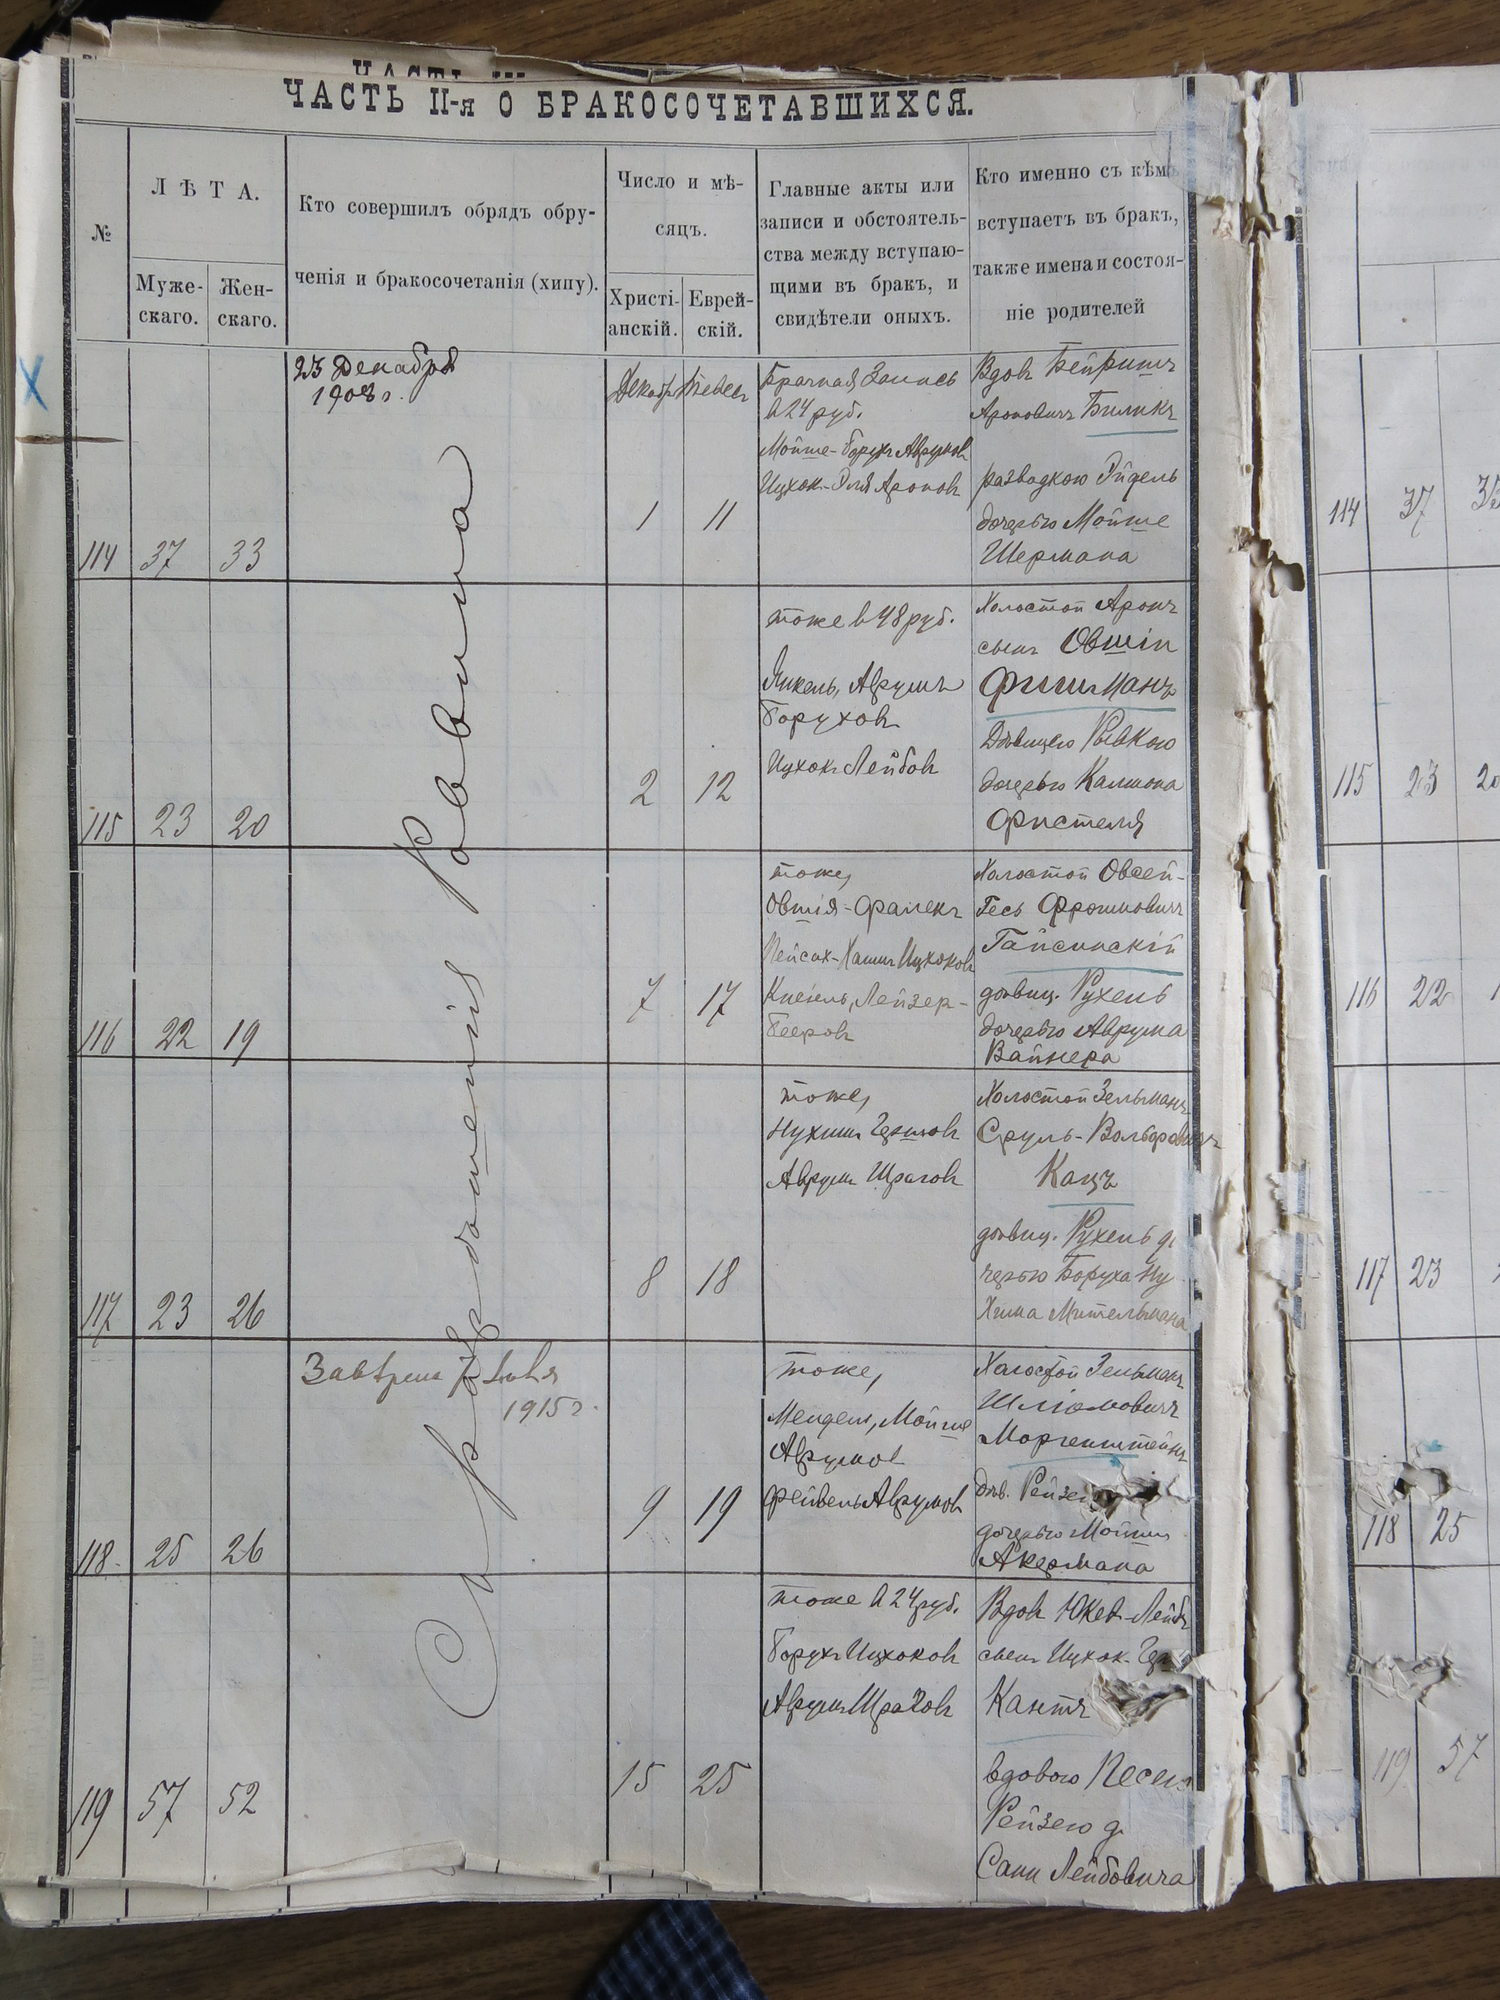 ЧАСТЬ II-я О БРАКОСОЧЕТАВШИХСЯ.
№
ЛѢТА.
Муже-
скаго.
Жен-
скаго.
Кто совершилъ обрядъ обру-
ченія и бракосочетанія (хипу).
Число и мѣ-
сяцъ.
Христі-
анскій.
Еврей-
скій.
Главные акты или
записи и обстоятель-
ства между вступаю-
щими въ бракъ, и
свидѣтели оныхъ.
Кто именно съ кѣмъ
вступаетъ въ бракъ,
также имена и состоя-
ніе родителей
114
37
33
23 Декабря
1908 г.
Декабр
Тевес
1
11
Брачная Запись
в 24 руб.
Мойше-Борухъ Аврумов
Ицхок-Эля Аронов
Вдов Бейришъ
Аронович Биликъ
разводкою Эйдель
дочерью Мойше
Шермана
115
23
20
2
12
тоже в 48 руб.
Янкель, Аврумъ
Борухов
Ицхок Лейбов
Холостой Аронъ
сынъ Овшіи
Фишманъ
Дѣвицею Рывкою
дочерью Калмана
Фистеля
116
22
19
7
17
тоже,
Овшія-Фалекъ
Пейсах-Хаим Ицхоков
Кисель, Лейзер-
Бееров
Холостой Овсей-
Гесь Фроимовичъ
Гайсинскій
дѣвиц. Рухель
дочерью Аврума
Вайнера
117
23
26
8
18
тоже,
Нухим Гершов
Аврум Шрагов
Холостой Зельманъ
Сруль-Вольфовичъ
Кацъ
дѣвиц. Рухель до
черью Боруха Ну
Хима Мительмана
118
25
26
9
19
1915 г.
тоже,
Мендель, Мойше
Аврумов
Фейвель Аврумов
Холостой Зельманъ
Шліомовичъ
Моргенштейнъ
Дѣв.
дочерью Мойши
Акермана
119
57
52
15
25
тоже в 24 руб.
Борухъ Ицхоков
Аврумъ Шрагов
Вдов Юкев-Лейбъ
сынъ Ицхок-
Кантъ
вдовою Песею
Рейзею д.
Сани Лейбовича
Раввина
114
37
33
115
23
20
116
22
117
23
118
25
119
57